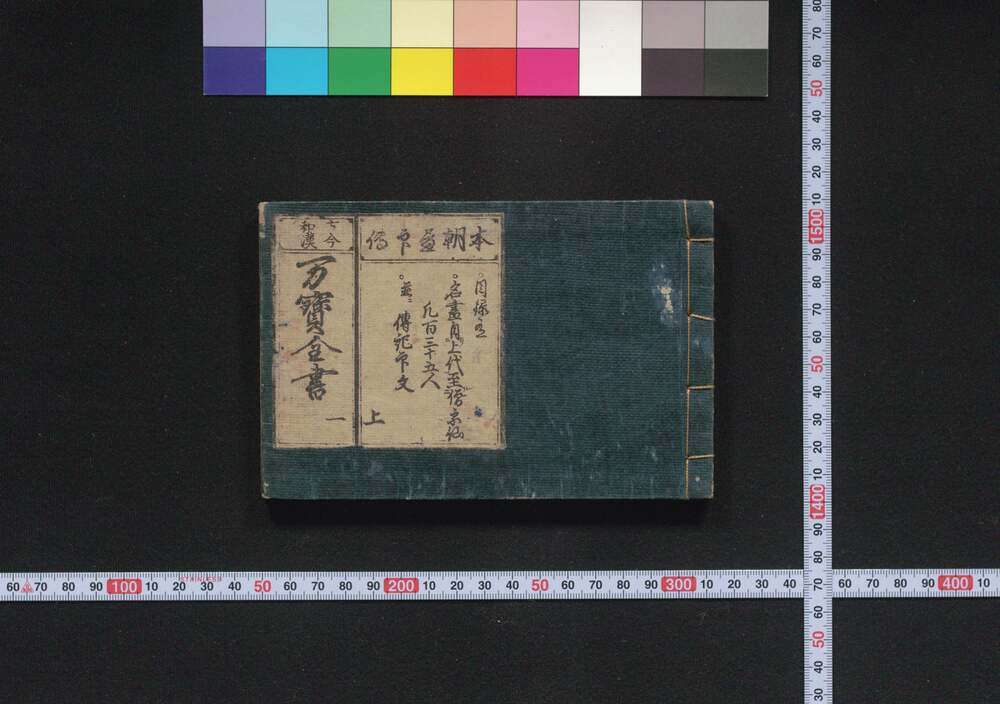 古今
和漢
万寳全書
一
本朝畫印傳
。目録之
。名畫自上代至僧宗仙
凡百三十五人
。並ニ傳記印文
上
60 70 80 90 100 10 20 30 40 50 60 70 80 90 200 10 20 30 40 50 60 70 80 90 300 10 20 30 40
STAINLESS
60 70 80 90 400 10
80 70 60 50 40 30 20 10 1500 90 80 70 60 50 40 30 20 10 1400 90 80 70 60 50 40 30